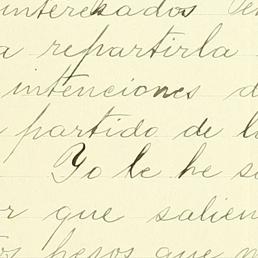 interesados
a repartirla
intenciones d
partido de l
Yo le he s
r que salien
os pesos que